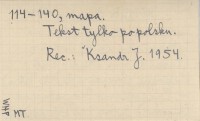 114–140, mapa.
Tekst tylko po polsku.
Rec.: Ksandr J. 1954.
WHF
MT